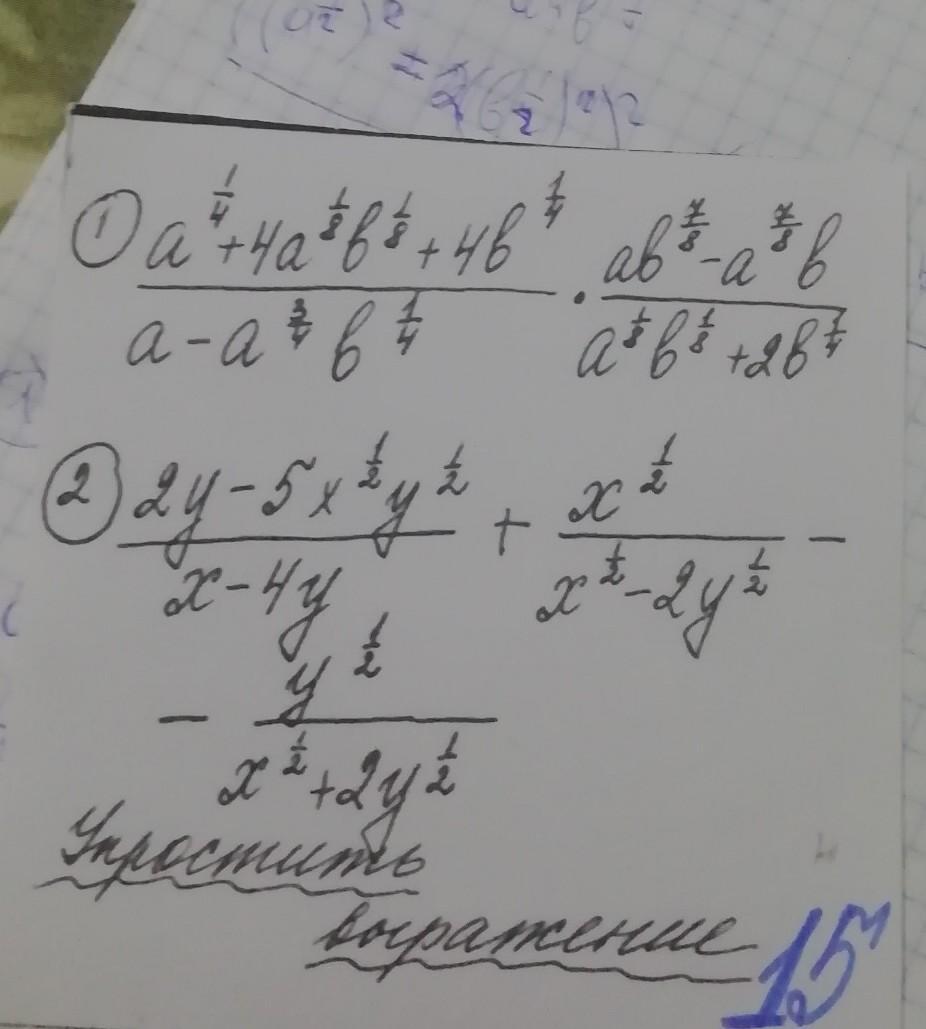 ((a½)²
= 2(b½)²)²
① (a^{1/4} + 4a^{1/8}b^{1/8} + 4b^{1/4})/(a - a^{3/4}b^{1/4}) · (ab^{7/8} - a^{7/8}b)/(a^{1/8}b^{1/8} + 2b^{1/4})
② (2y - 5x^{1/2}y^{1/2})/(x - 4y) + x^{1/2}/(x^{1/2} - 2y^{1/2}) -
- y^{1/2}/(x^{1/2} + 2y^{1/2})
Упростить
выражение
15